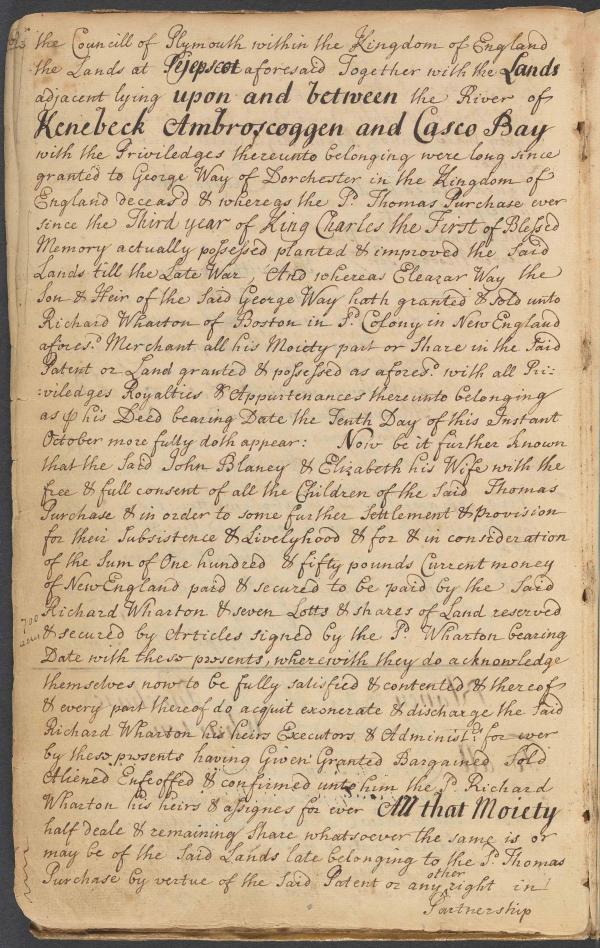 the Councill of Plymouth within the Kingdom of England
the Lands at Pejepscot aforesaid Together with the Lands
adjacent lying upon and between the River of
Kenebeck Ambroscoggen and Casco Bay
with the Priviledges thereunto belonging were long since
granted to George Way of Dorchester in the Kingdom of
England deceas'd & whereas the sd. Thomas Purchase ever
since the Third year of King Charles the First of Blessed
Memory actually possessed planted & improved the Said
Lands till the Late War And whereas Eleazar Way the
Son & Heir of the Said George Way hath granted & Sold unto
Richard Wharton of Boston in sd. Colony in New England
afores.d Merchant all his Moiety part or Share in the Said
Patent or Land granted & possessed as afores.d with all Pri:
:viledges Royalties & Appurtenances thereunto belonging
as ⅌ his Deed bearing Date the Tenth Day of this Instant
October more fully doth appear: Now be it further known
that the Said John Blaney & Elizabeth his Wife with the
free & full consent of all the Children of the Said Thomas
Purchase & in order to some further Settlement & provision
for their Subsistence & Livelyhood & for & in consideration
of the Sum of One hundred & fifty pounds Current money
of New England paid & secured to be paid by the Said
Richard Wharton & seven Lotts & shares of Land reserved
700
& secured by Articles signed by the sd. Wharton bearing
Date with these presents, wherewith they do acknowledge
themselves now to be fully satisfied & contented & thereof
& every part thereof do acquit exonerate & discharge the Said
Richard Wharton his heirs Executors & Administ.rs for ever
by these presents having Given Granted Bargained Sold
Aliened Enfeoffed & confirmed unto him the sd. Richard
Wharton his heirs & assignes for ever All that Moiety
half deale & remaining Share whatsoever the same is or
may be of the Said Lands late belonging to the sd. Thomas
Purchase by vertue of the Said Patent or any other right in
Partnership